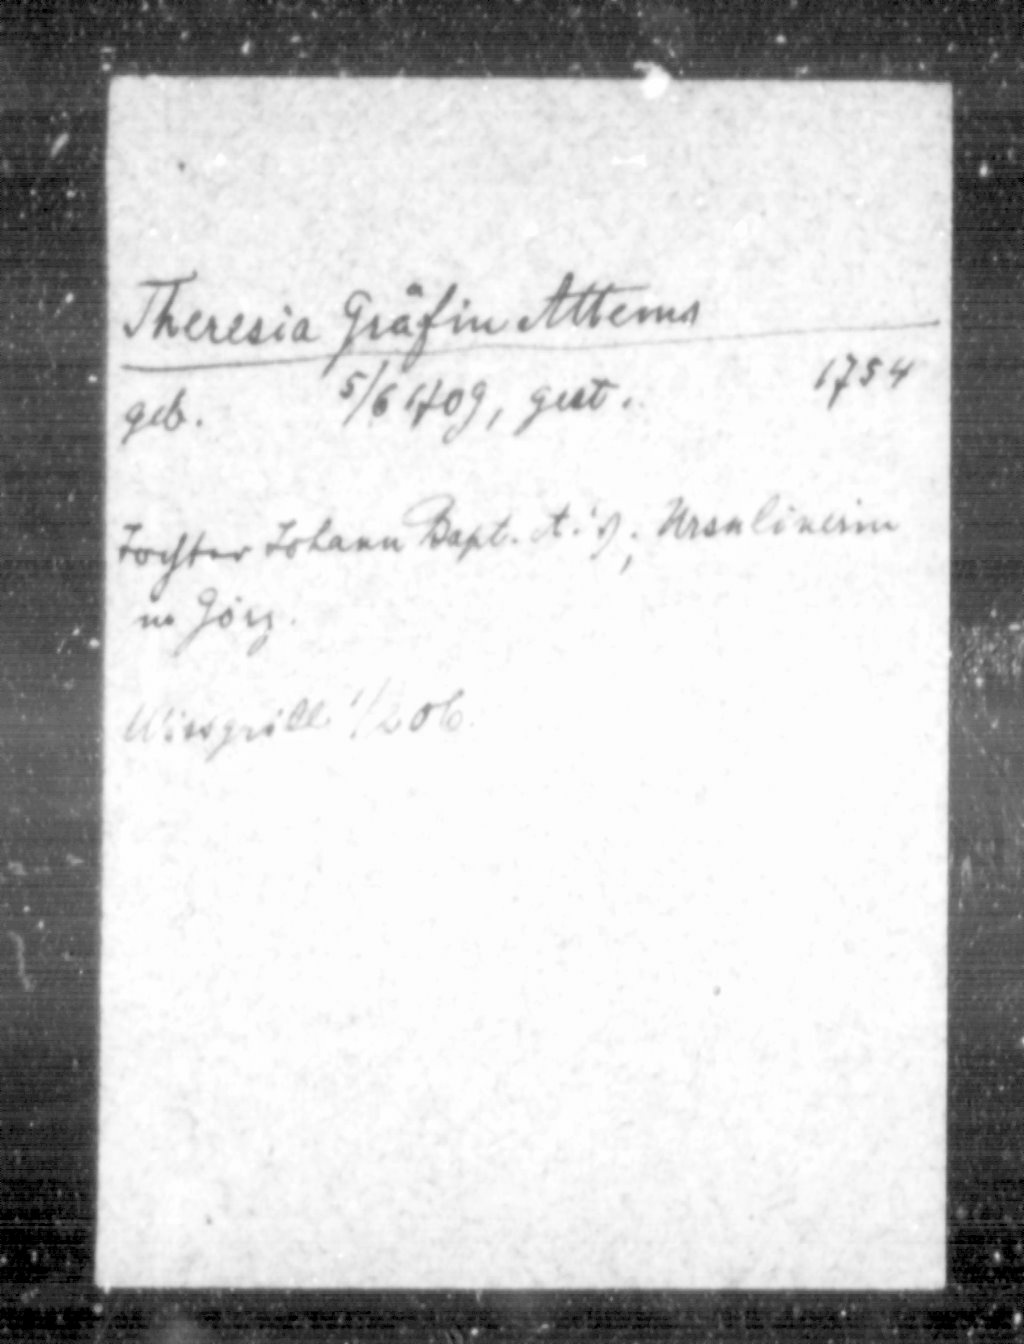 Theresia Gräfin Attems
geb. 5/6 1709, gest. 1754
Tochter Johann Bapt. A.'s; Ursulinerin
in Görz.
Wissgrill 1/206.